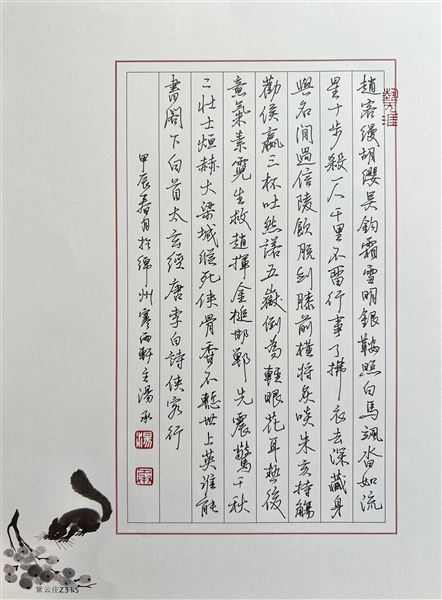 趙客縵胡纓吳鈎霜雪明銀鞍照白馬颯沓如流
星十步殺一人千里不留行事了拂衣去深藏身
與名閒過信陵飲脫劍膝前橫將炙啖朱亥持觴
勸侯嬴三杯吐然諾五嶽倒為輕眼花耳熱後
意氣素霓生救趙揮金槌邯鄲先震驚千秋
二壯士烜赫大梁城縱死俠骨香不慙世上英誰能
書閣下白首太玄經唐李白詩俠客行
甲辰春月於綿州寒雨軒主湯
紫云庄Z315